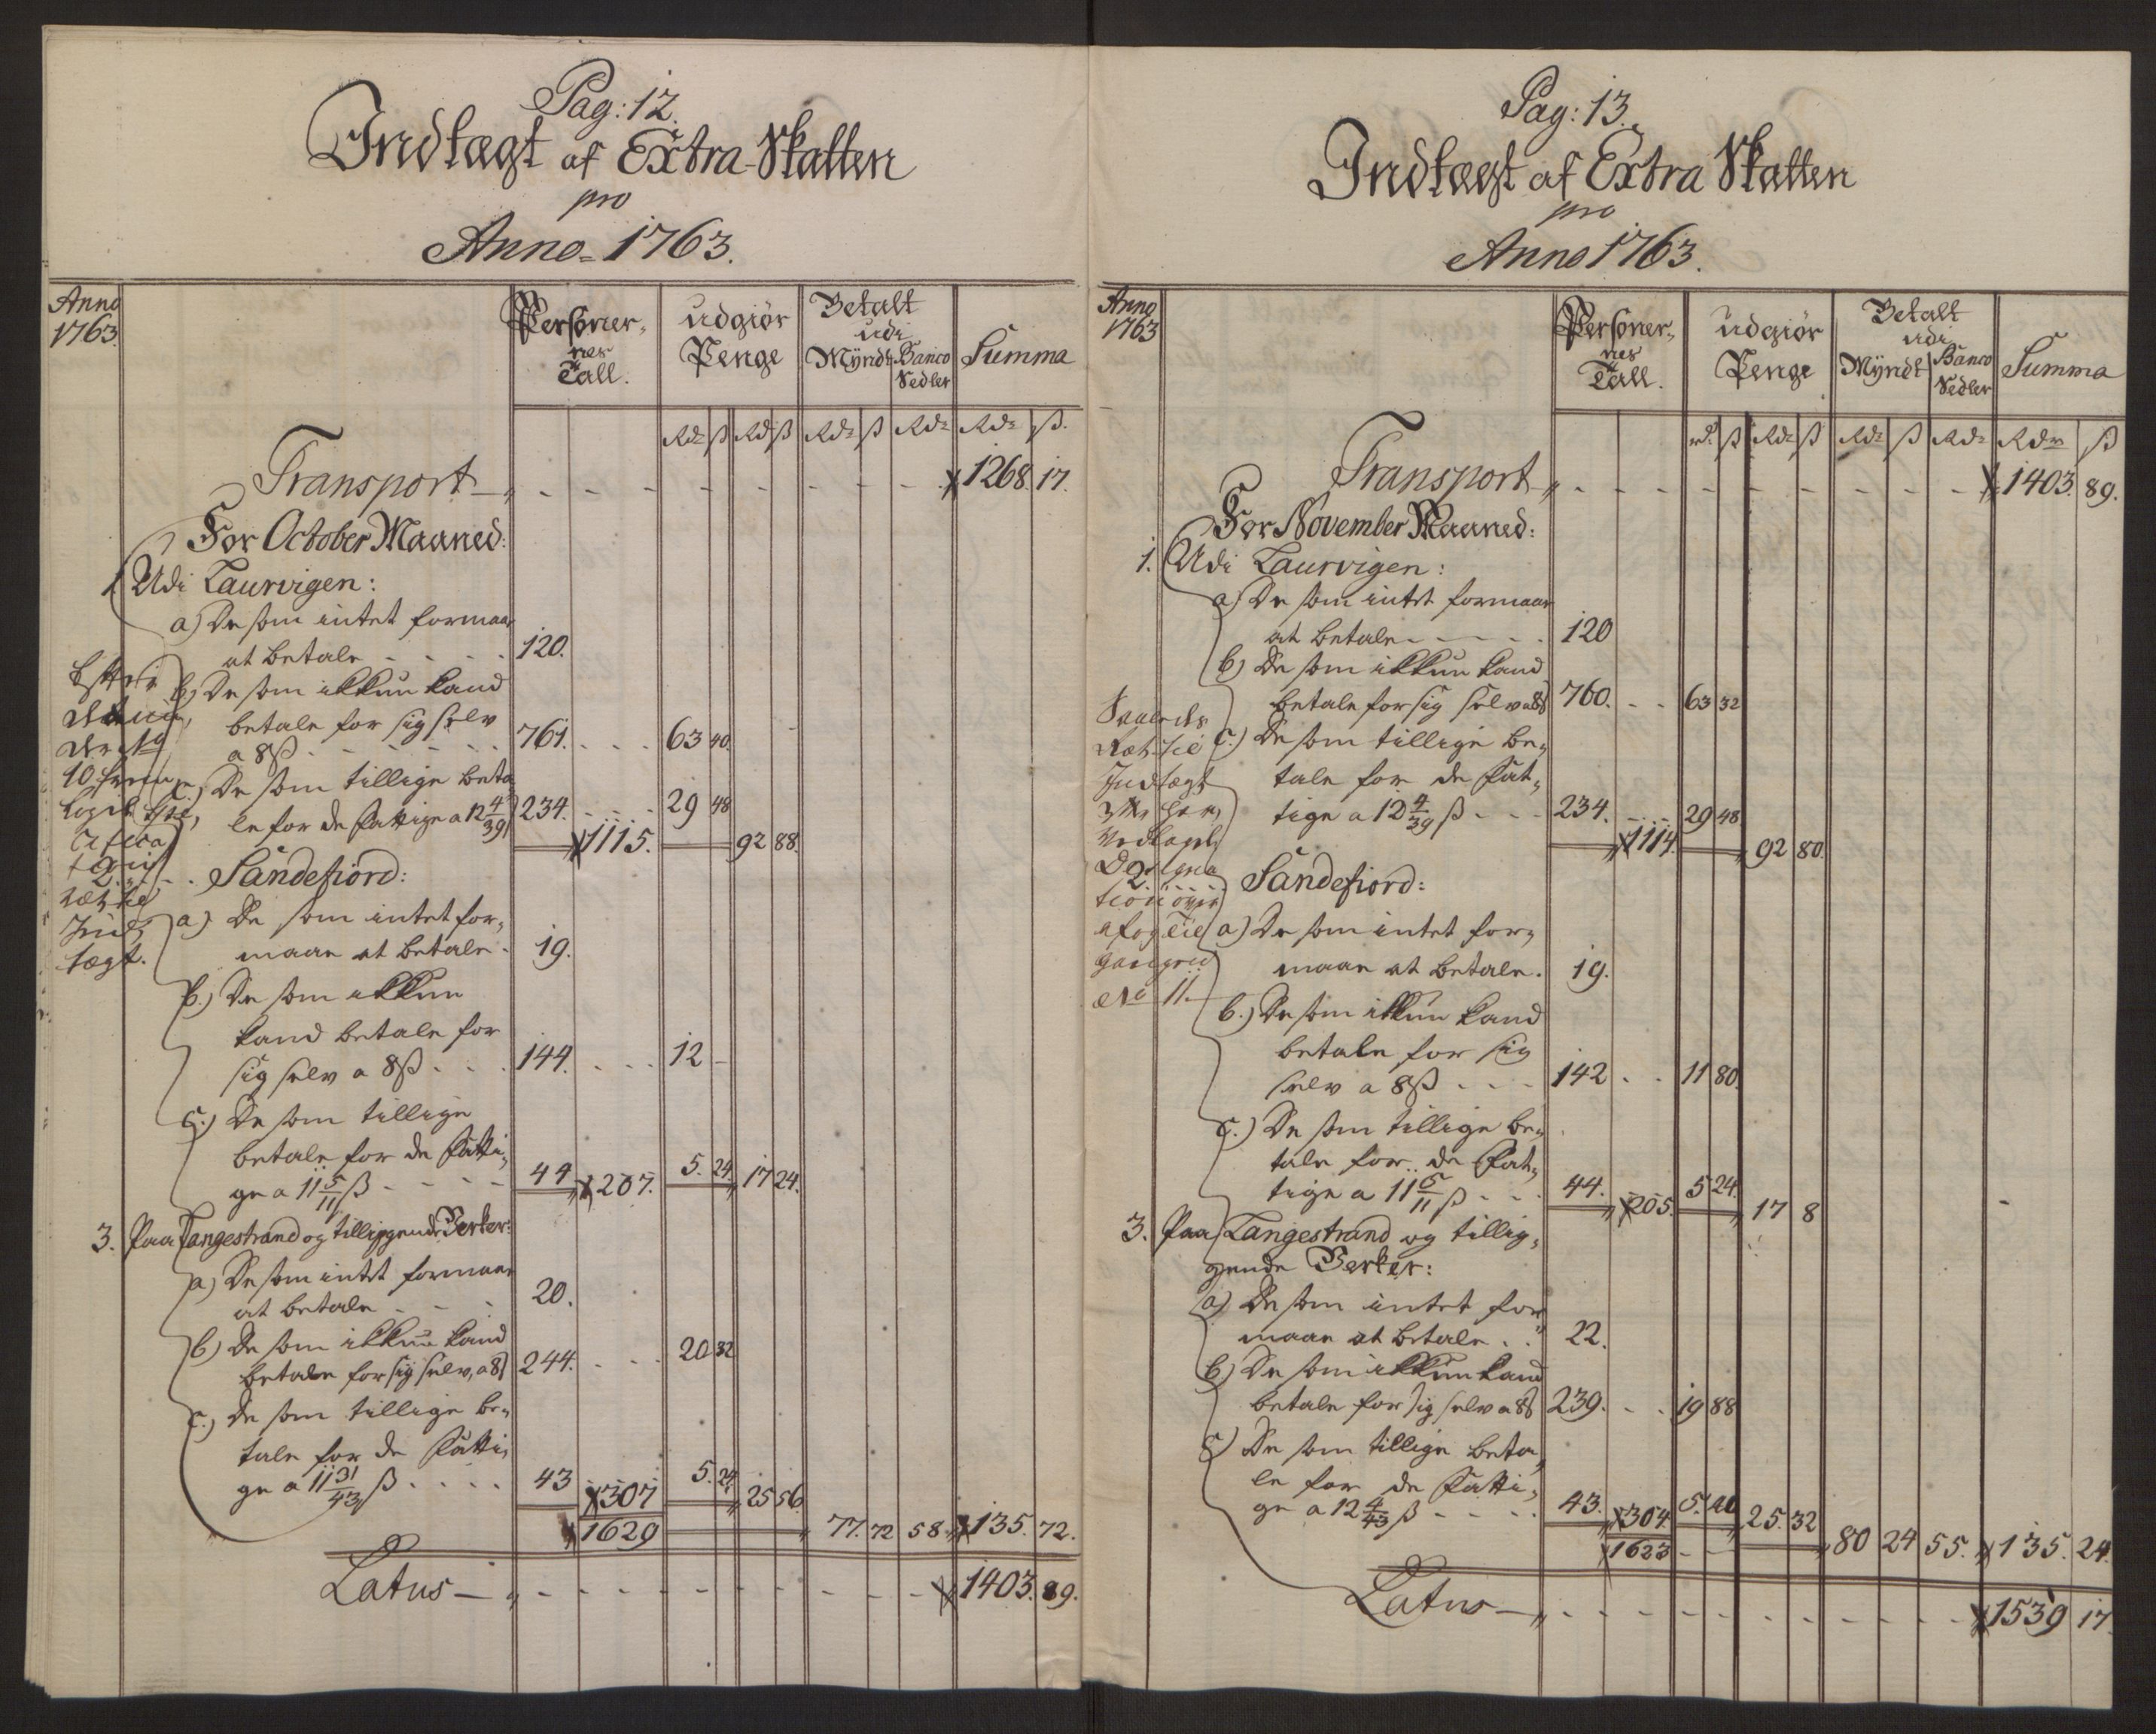 Pag: 12.
Indtægt af Extra-Skatten
pro
Anno=1763.
Anno
1763.
Personer-
nes
Tall.
udgiør
Penge
Betalt
udi
Myndt Banco
Sedler
Summa
Rdr ß Rd ß Rdr ß Rdr Rdr ß.
Transport - - - - - - - 1268. 17.
For October Maaned:
1. Udi Laurvigen:
a) De som intet formaar
at betale - - - 120.
b) De som ikkun kand
betale for sig selv
a 8 ß - - - 761. - - - 63 40.
c.) De som tillige beta
le for de fattige a 12 4/39 234. - - - 29 48
1115. 92 88.
2. Sandefiord:
a) De som intet for-
maar at betale - 19.
b.) De som ikkun
kand betale for
sig selv a 8 ß - - 144. - - - 12 -
c.) De som tillige
betale for de fatti-
ge a 11 5/11 ß - - - 44 207. 5. 24 17 24.
3. Paa Langestrand og tilliggende Verker:
a) De som intet formaar
at betale - - - 20.
b) De som ikkun kand
betale for sig selv, a 8 ß 244. - - - 20 32
c.) De som tillige be-
tale for de fatti-
ge a 11 31/43 ß - - - - 43 307 5. 24 25 56.
1629 77. 72 58. 135. 72.
Latus - - - - - - - 1403. 89.
tægt.
Pag: 13.
Indtægt af Extra Skatten
pro
Anno 1763.
Anno
1763
Personer-
nes
Tall.
udgiør
Penge
Betalt
udi
Myndt Banco
Sedler
Summa
rd. ß Rdr ß Rdr ß Rdr Rdr ß
Transport - - - - - - - 1403. 89.
For November Maaned:
1. Udi Laurvigen:
a) De som intet formaar
at betale - - - - 120
b) De som ikkun kand
betale for sig selv a 8 ß 760. - - 63 32
c.) De som tillige be-
tale for de fat-
tige a 12 4/39 ß - - - 234. - - - 29 48
1114. 92 80.
2. Sandefiord:
a) De som intet for-
maar at betale. 19.
b.) De som ikkun kand
betale for sig
selv a 8 ß - - - 142 - - 11 80.
c.) De som tillige be-
tale for de fat-
tige a 11 5/11 ß - - - 44. 205. 5 24. 17 8
3. Paa Langestrand og tillig-
gende Verker:
a) De som intet for
maar at betale. . 22.
b) De som ikkun kand
betale for sig selv a 8 ß 239. - - 19 88
c) De som tillige beta
le for de fatti-
ge a 12 4/43 ß - - - - 43. 304. 5. 40 25. 32
1623 - - 80 24 55. 135. 24.
Latus - - - - - - - 1539 17.
Indtægt
No 11.